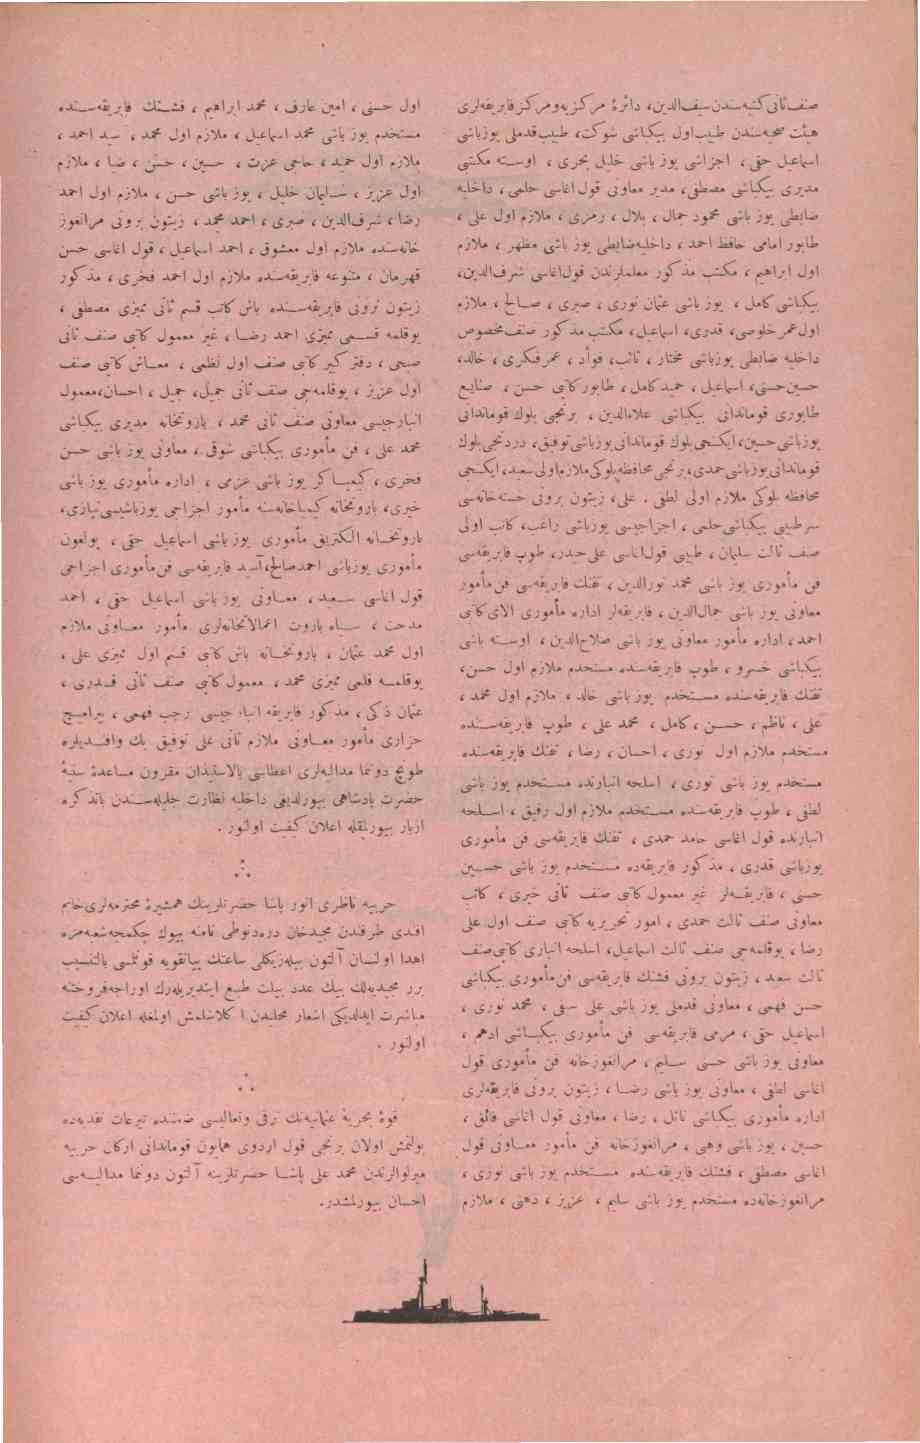 صنف ثانی کتبه‌سندن سیف‌الدین، دائرۀ مرکزیه و مرکز فابریقه‌لری
هیئت صحیه‌سندن طبیب اول بیکباشی شوکت، طبیب قدملی یوزباشی
اسماعیل حقی، اجزاجی یوز باشی خلیل بحری، اوسته مکتبی
مدیری بیکباشی مصطفی، مدیر معاونی قول اغاسی حلمی، داخلیه
ضابطی یوز باشی محمود جمال، بلال، رمزی، ملازم اول علی،
طابور امامی حافظ احمد، داخلیه ضابطی یوز باشی مظهر، ملازم
اول ابراهیم، مکتب مذکور معلملرندن قول اغاسی شرف‌الدین،
بیکباشی کامل، یوز باشی عثمان نوری، صبری، صالح، ملازم
اول عمر خلوصی، قدری، اسماعیل، مکتب مذکور صنف مخصوص
داخلیه ضابطی یوزباشی مختار، نائب، فوأد، عمر فکری، خالد،
حسین حسنی، اسماعیل، حمید کامل، طابور کاتبی حسن، صنایع
طابوری قوماندانی بیکباشی علاءالدین، برنجی بلوك قوماندانی
یوزباشی حسین، ایکنجی بلوك قوماندانی یوزباشی توفیق، دردنجی بلوك
قوماندانی یوزباشی حمدی، برنجی محافظه بلوکی ملازم اولی سعید، ایکنجی
محافظه بلوکی ملازم اولی لطفی . علی، زیتون برونی خسته‌خانه‌سی
سر طبیبی بیکباشی حلمی، اجزاجیسی یوزباشی راغب، کاتب اولی
صنف ثالث سلیمان، طبیبی قول اغاسی علی حیدر، طوپ فابریقه‌سی
فن مأموری یوز باشی محمد نورالدین، تفنك فابریقه‌سی فن مأمور
معاونی یوز باشی جمال‌الدین، فابریقه‌لر اداره مأموری الای کاتبی
احمد، اداره مأمور معاونی یوز باشی صلاح‌الدین، اوسته باشی
بیکباشی خسرو، طوپ فابریقه‌سنده مستخدم ملازم اول حسن،
تفنك فابریقه‌سنده مستخدم یوز باشی خالد، ملازم اول محمد،
علی، ناظم، حسن، کامل، محمد علی، طوپ فابریقه‌سنده
مستخدم ملازم اول نوری، احسان، رضا، تفنك فابریقه‌سنده
مستخدم یوز باشی نوری، اسلحه انبارنده مستخدم یوز باشی
لطفی، طوپ فابریقه‌سنده مستخدم ملازم اول رفیق، اسلحه
انبارنده قول اغاسی حامد حمدی، تفنك فابریقه‌سی فن مأموری
یوزباشی قدری، مذکور فابریقه‌ده مستخدم یوز باشی حسین
حسنی، فابریقه‌لر غیر معمول کاتبی صنف ثانی خیری، کاتب
معاونی صنف ثالث حمدی، امور تحریریه کاتبی صنف اول علی
رضا، یوقلمه‌جی صنف ثالث اسماعیل، اسلحه انباری کاتبی صنف
ثالث سعید، زیتون برونی فشنك فابریقه‌سی فن مأموری بیکباشی
حسن فهمی، معاونی قدملی یوز باشی علی، محمد نوری،
اسماعیل حقی، مرمی فابریقه‌سی فن مأموری بیکباشی ادهم،
معاونی یوز باشی حسنی سلیم، مرانغوزخانه فن مأموری قول
اغاسی لطفی، معاونی یوز باشی رضا، زیتون برونی فابریقه‌لری
اداره مأموری بیکباشی نائل، رضا، معاونی قول اغاسی فائق،
حسین، یوز باشی وهبی، مرانغوزخانه فن مأمور معاونی قول
اغاسی مصطفی، فشنك فابریقه‌سنده مستخدم یوز باشی نوری،
مرانغوزخانه‌ده مستخدم یوز باشی سلیم، عزیز، ملازم
اول حسنی، امین عارف، محمد ابراهیم، فشنك فابریقه‌سنده
مستخدم یوز باشی محمد اسماعیل، ملازم اول محمد، سید احمد،
ملازم اول حمید، حاجی عزت، حسین، حسن، ضیا، ملازم
اول عزیز، سلیمان خلیل، یوز باشی حسن، ملازم اول احمد
رضا، شرف‌الدین، صبری، احمد محمد، زیتون برونی مرانغوز
خانه‌سنده ملازم اول معشوق، احمد اسماعیل، قول اغاسی حسن
قهرمان، متنوعه فابریقه‌سنده ملازم اول احمد فخری، مذکور
زیتون برونی فابریقه‌سنده باش کاتب قسم ثانی ممیزی مصطفی،
یوقلمه قسمی ممیزی احمد رضا، غیر معمول کاتبی صنف ثانی
صبحی، دفتر کبیر کاتبی صنف اول نظمی، معاش کاتبی صنف
اول عزیز، یوقلمه‌جی صنف ثانی جمیل، جمیل، احسان، معمول
انبارجیسی معاونی صنف ثانی محمد، باروتخانه مدیری بیکباشی
محمد علی، فن مأموری بیکباشی شوقی، معاونی یوز باشی حسن
فخری، کیمیاکر یوز باشی عزمی، اداره مأموری یوز باشی
خیری، باروتخانه کیمیاخانه‌سنه مأمور اجزاجی یوزباشیسی نیازی،
باروتخانه الکتریق مأموری یوز باشی اسماعیل حقی، پولغون
مأموری یوزباشی احمد صالح، آسید فابریقه‌سی فن مأموری اجزاجی
قول اغاسی سعید، معاونی یوز باشی اسماعیل حقی، احمد
مدحت، سیاه باروت اعمالاتخانه‌لری مأمور معاونی ملازم
اول محمد عثمان، باروتخانه باش کاتبی قسم اول ممیزی علی،
یوقلمه قلمی ممیزی محمد، معمول کاتبی صنف ثانی قدری،
عثمان ذکی، مذکور فابریقه انبارجیسی رجب فهمی،
حزاری مأمور معاونی ملازم ثانی علی توفیق بك وافندیلره
طونج دونما مدالیه‌لری اعطاسی بالاستیذان مقرون مساعدۀ سنیۀ
حضرت پادشاهی بیورلدیغی داخلیه نظارت جلیله‌سندن باتذکره
ازبار بیورلمقله اعلان کیفیت اولنور .
∴
حربیه ناظری انور پاشا حضرتلرینك همشیرۀ محترمه‌لری خانم
افندی طرفندن مجیدخان دردنوطی نامنه بیوك چکمجه شعبه‌مزه
اهدا اولنان آلتون بیله‌زیکلی ساعتك بیانقویه قونلمسی بالتنسیب
برر مجیدیه‌لك بیك عدد بیلت طبع ایتدیریله‌رك اوراجه فروخته
مباشرت ایدلدیکی اشعار محلیدن ا کلاشلمش اولمغله اعلان کیفیت
اولنور .
∴
قوۀ بحریۀ عثمانیه‌نك ترقی وتعالیسی ضمننده تبرعات نقدیه‌ده
بولنمش اولان برنجی قول اردوی همایون قوماندانی ارکان حربیه
میرلوالرندن محمد علی پاشا حضرتلرینه آلتون دونما مدالیه‌سی
احسان بیورلمشدر.